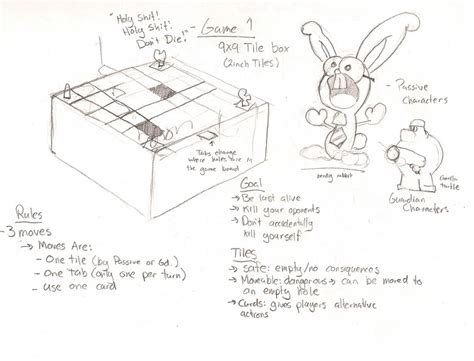 "Holy Shit!
Holy Shit!
Don't Die!"
- Game 1
9x9 Tile box
(2inch Tiles)
- Passive
Characters
Tabs change
where holes are in
the game board
nerdy rabbit
Guardian
Characters
Goal
→ Be last alive
→ Kill your oponents
→ Don't accidentally
kill yourself
Rules
- 3 moves
→ Moves Are:
- One tile (by Passive or Gd.)
- One tab (only one per turn)
- Use one card
Tiles
→ Safe: empty/no consequences
→ Moveable: dangerous → can be moved to
an empty hole
→ Cards: gives players alternative
actions